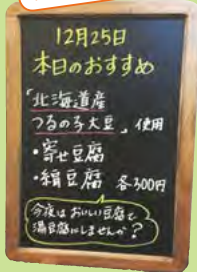 12月25日
本日のおすすめ
「北海道産
つるの子大豆」使用
・寄せ豆腐
・絹豆腐 各300円
今夜はおいしい豆腐で
湯豆腐にしませんか?